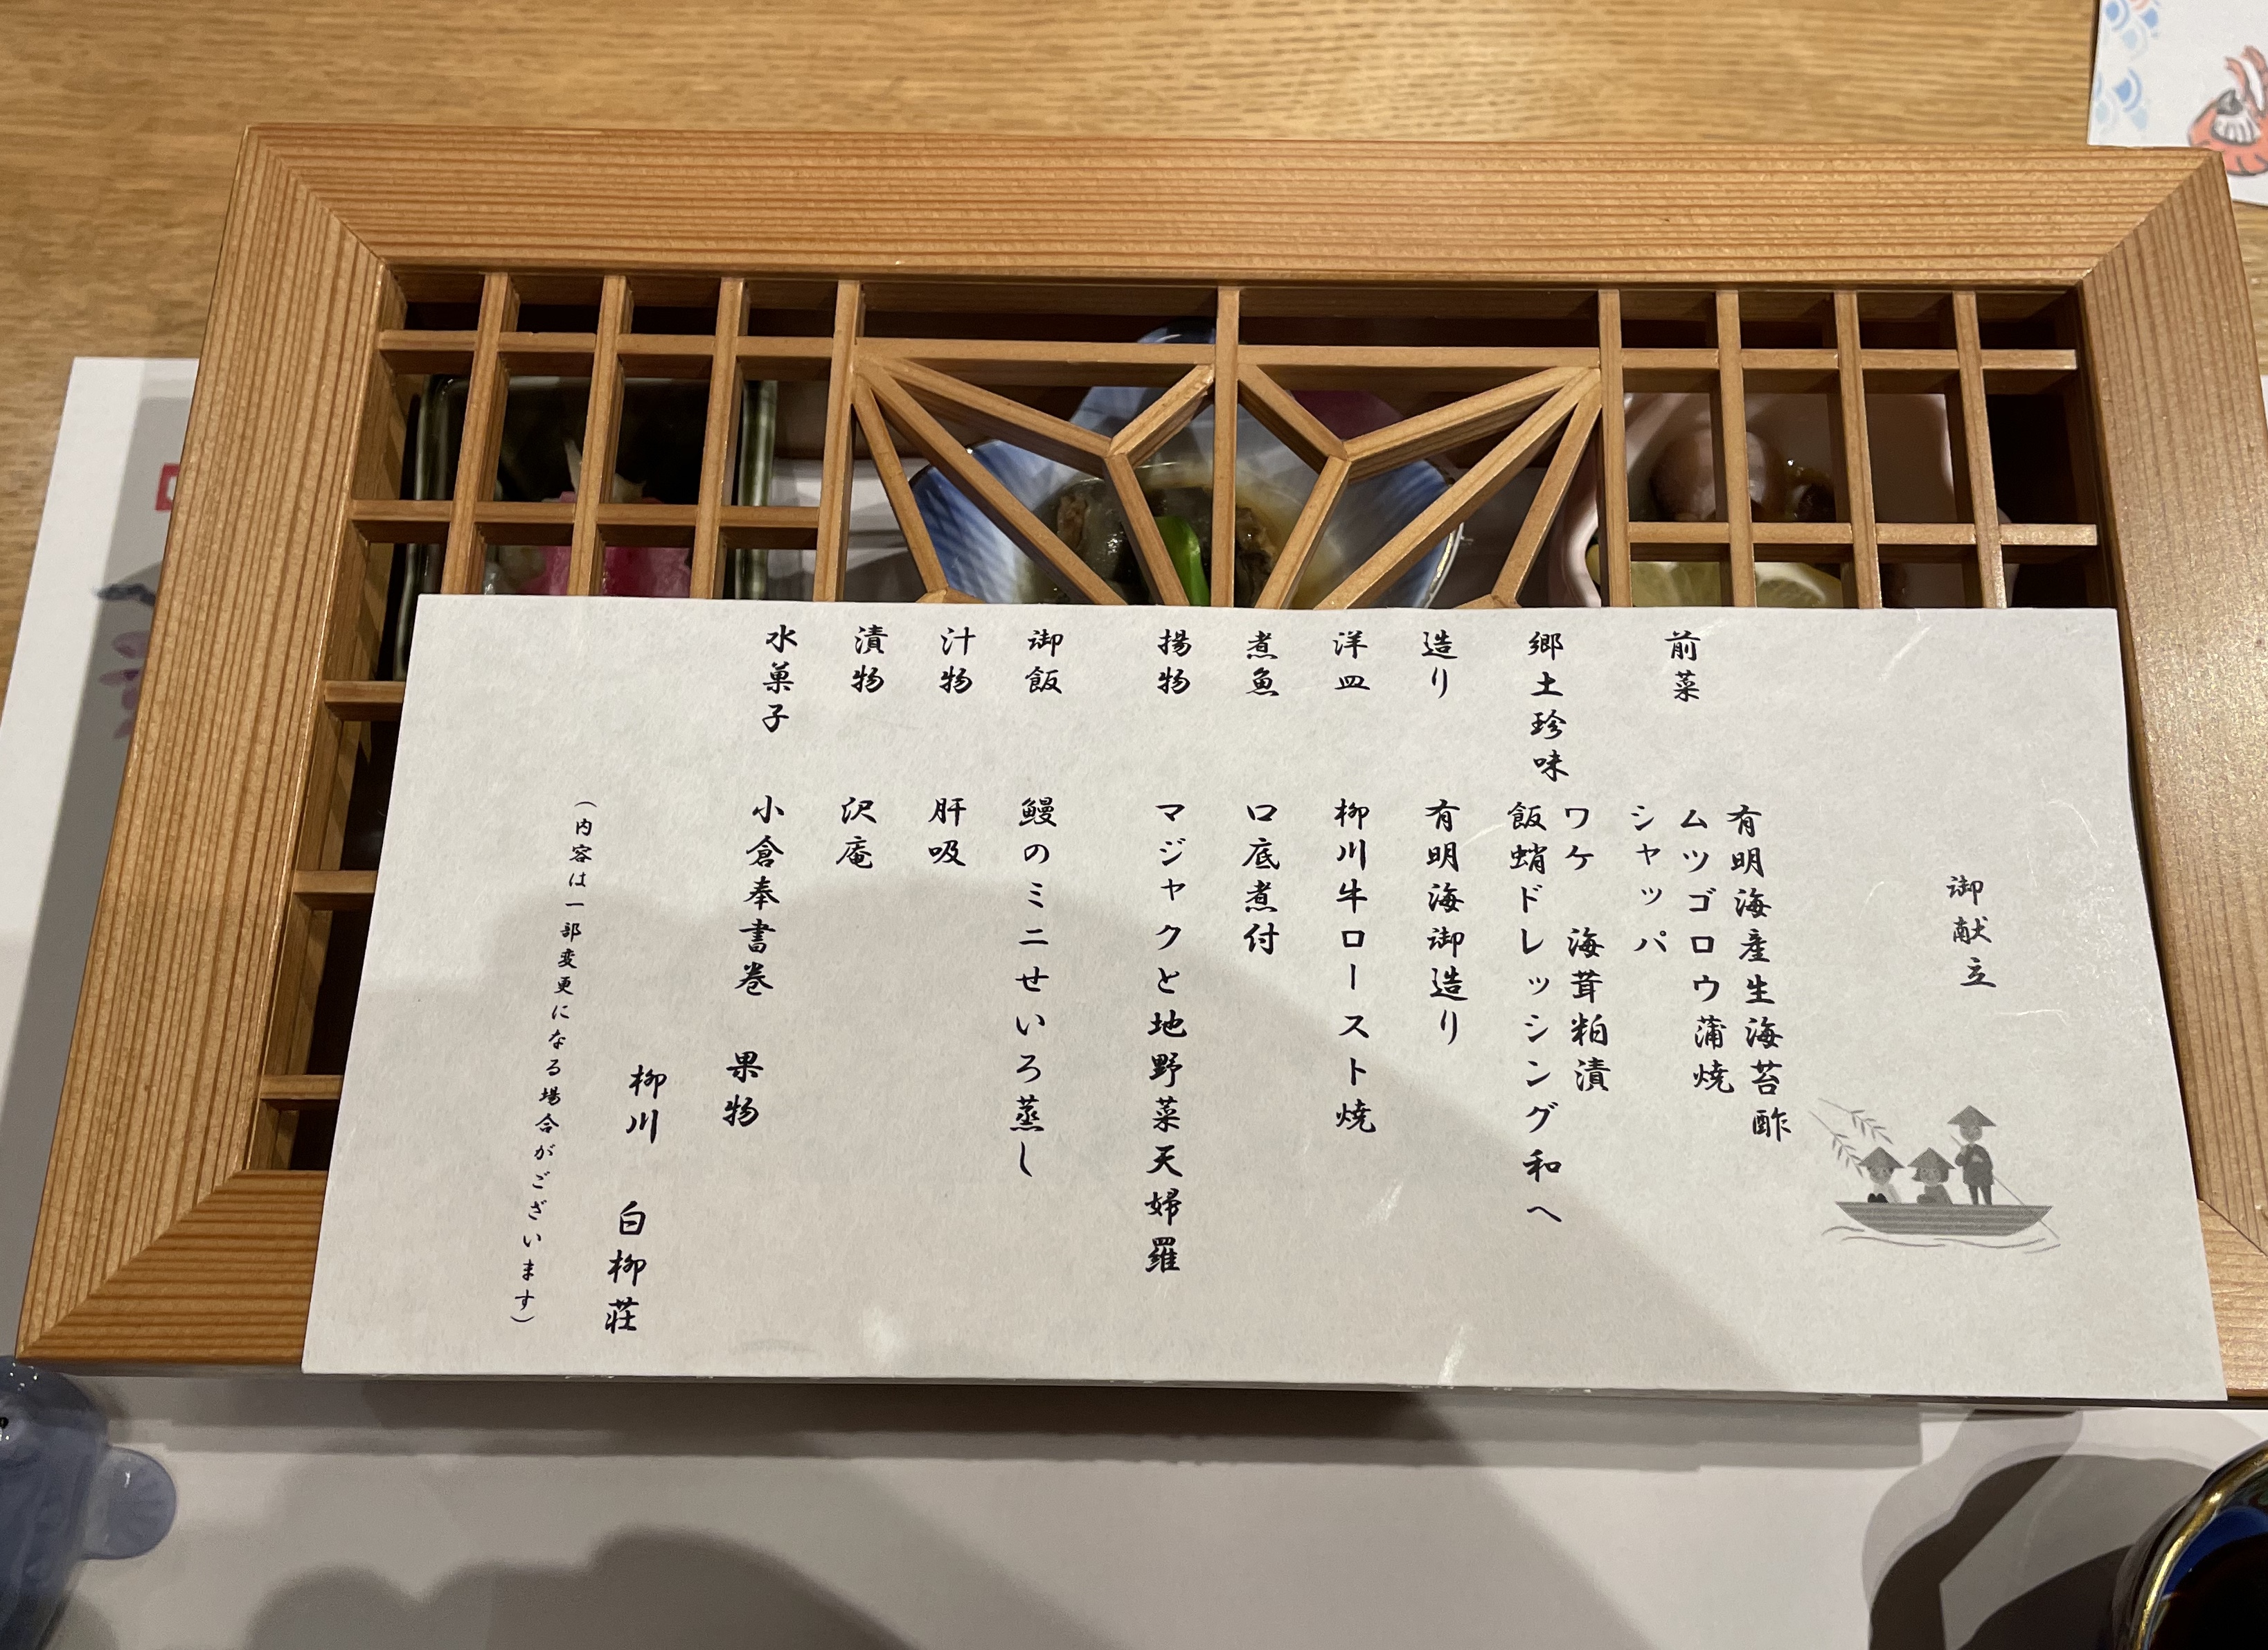 御献立
前菜
有明海産生海苔酢
ムツゴロウ蒲焼
シャッパ
郷土珍味
ワケ　海茸粕漬
飯蛸ドレッシング和へ
造り　有明海御造り
洋皿　柳川牛ロースト焼
煮魚　口底煮付
揚物　マジャクと地野菜天婦羅
御飯　鰻のミニせいろ蒸し
汁物　肝吸
漬物　沢庵
水菓子　小倉奉書巻　果物
柳川　白柳荘
（内容は一部変更になる場合がございます）